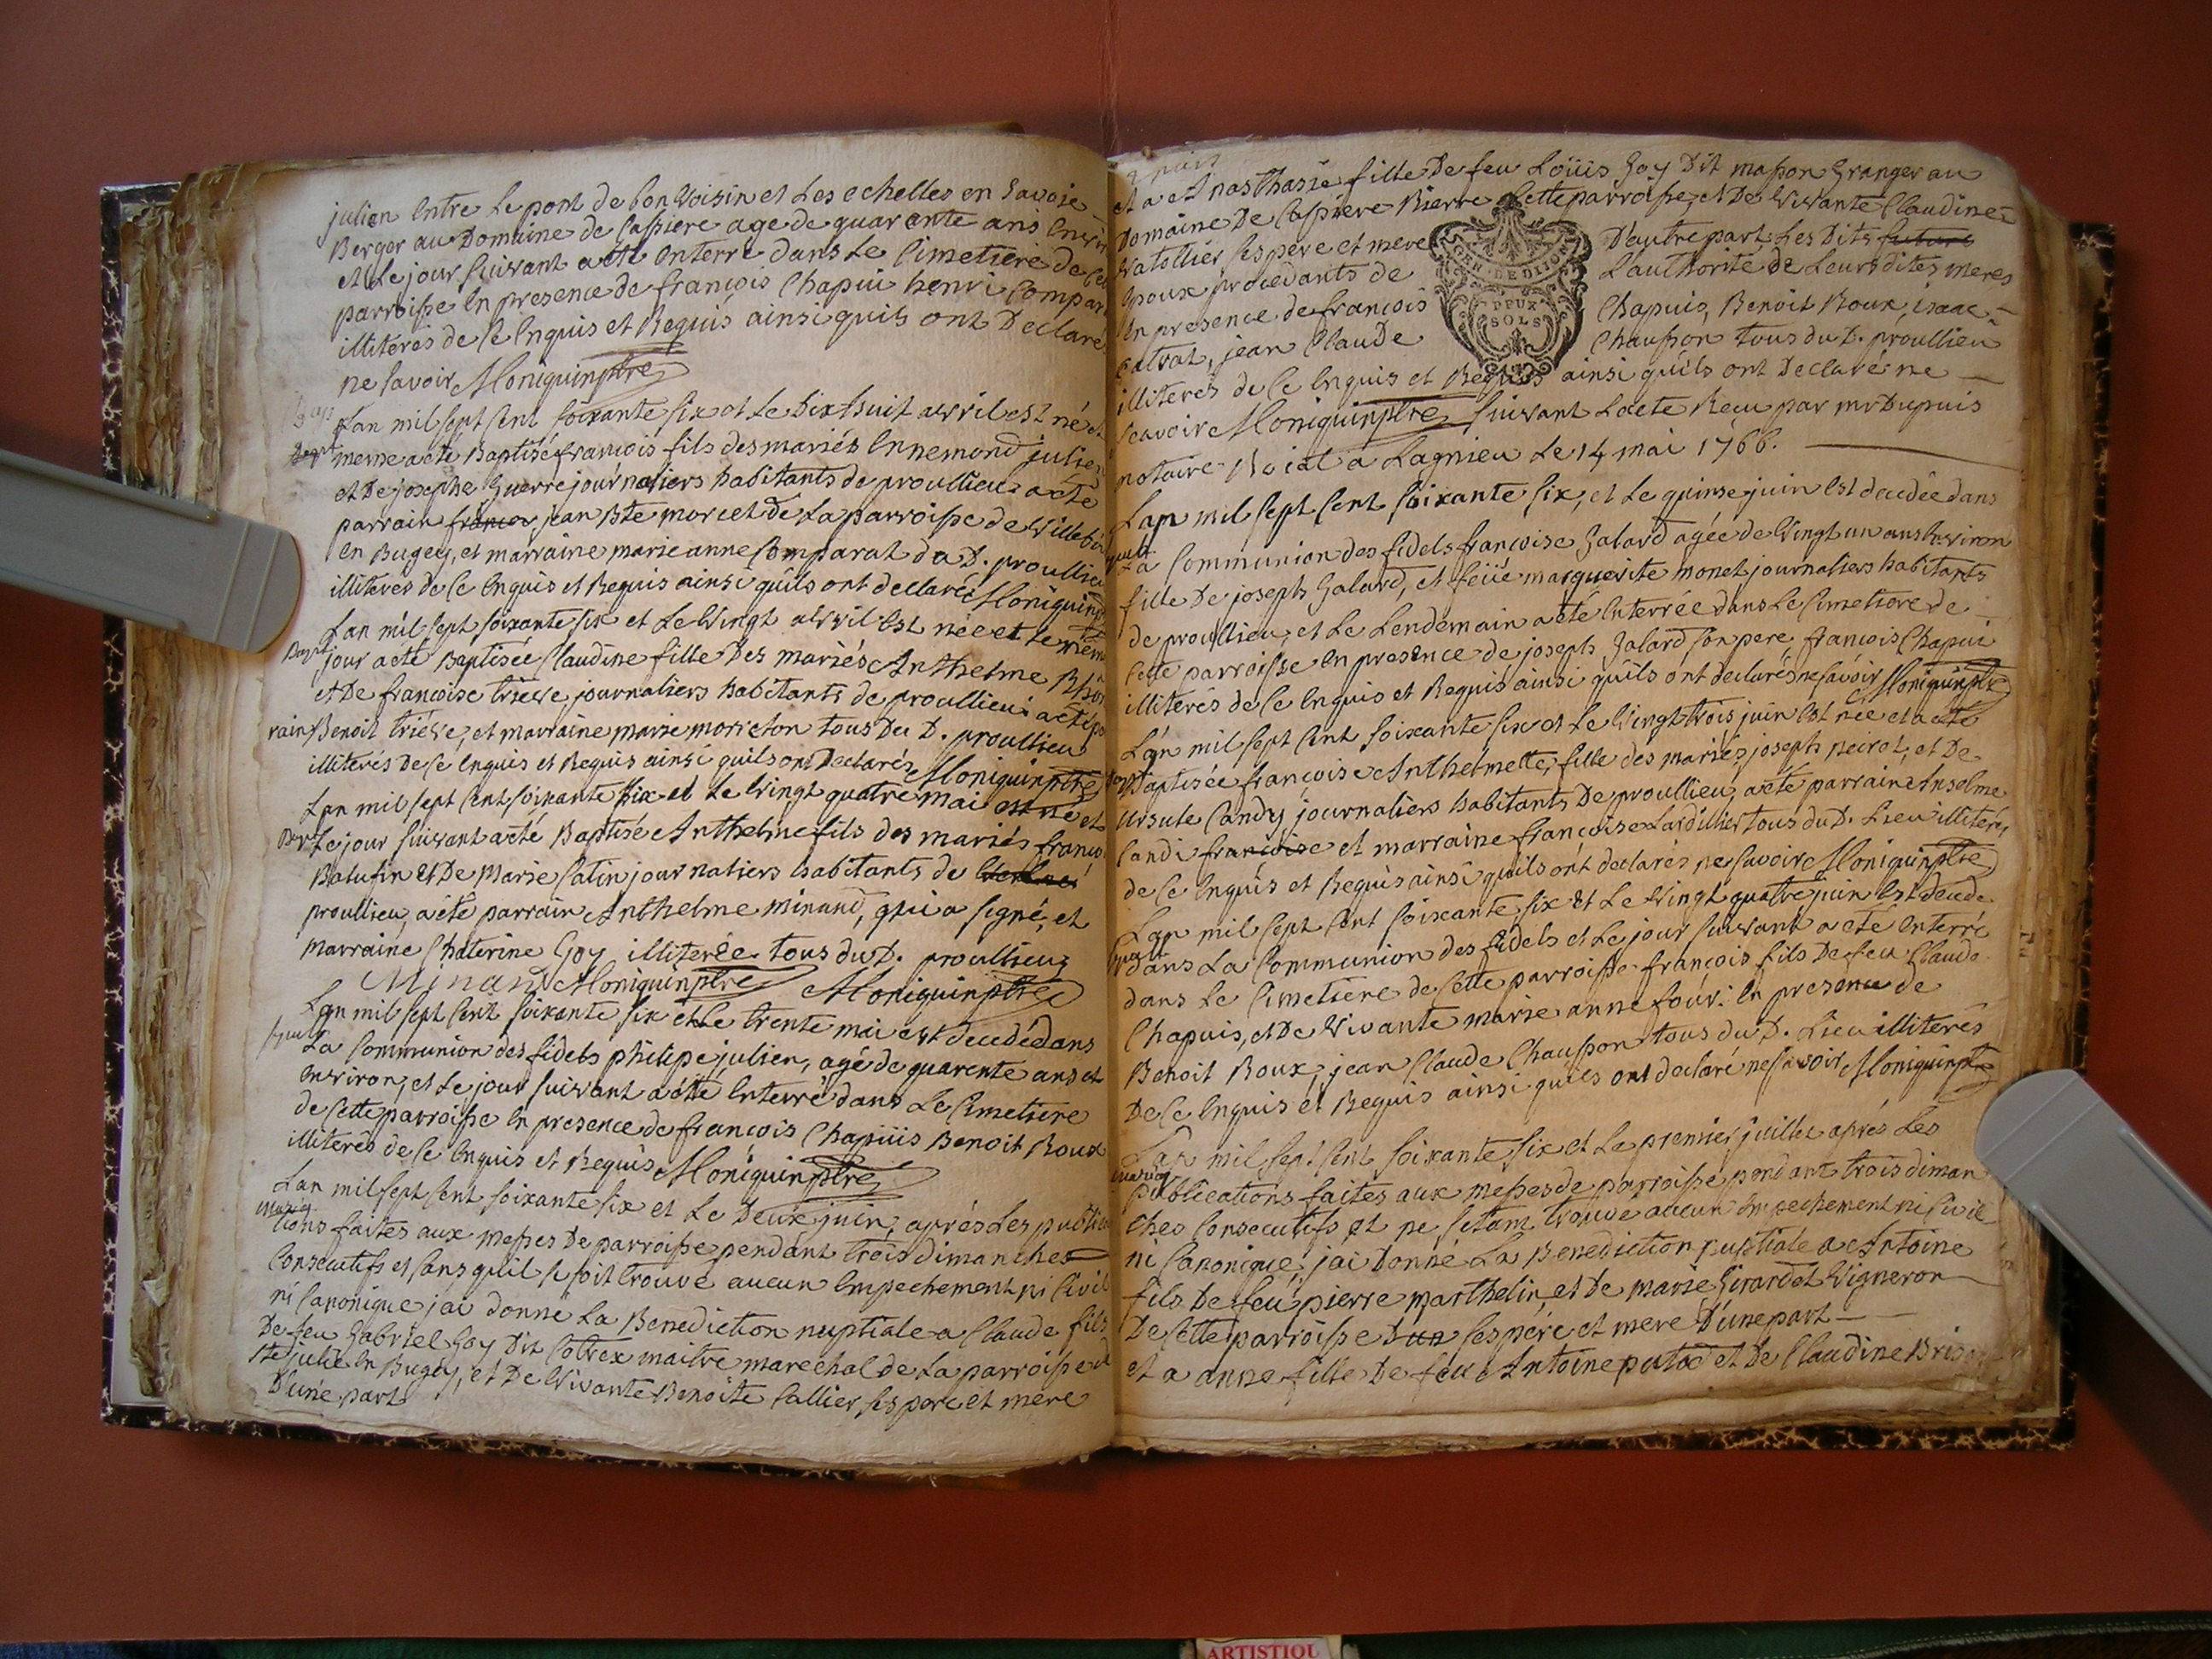 julien entre le pont de bon voisin et les echelles en savoie
Berger au Domaine de Cassiere age de quarante ans
et le jour suivant a eté enterré dans le Cimetiere de
parroisse en presence de françois Chapui henri
illiterés de ce enquis et Requis ainsi quils ont Declaré
ne savoir Moniquin ptre
Lan mil sept cent soixante six et le dix huit avril est né et
Bapt meme a eté Baptisé françois fils des mariés Ennemond julien
et De josephe Guerre journaliers habitants de proullieu a eté
parrain jean Bte morcet de La parroisse de
en Bugey, et marraine marie anne Comparat du D. proullieu
illiteres de ce enquis et Requis ainsi quils ont declaré Moniquin
Lan mil sept soixante six et Le vingt avril est née et le meme
Bapt jour a eté Baptisée Claudine fille Des mariés Anthelme
et De francoise trieve journaliers habitants de proullieu a eté
rain Benoit trieve, et marraine marie morreton tous Du D. proullieu
illiterés De ce enquis et Requis ainsi quils ont Declarés Moniquin ptre
Lan mil sept cent soixante six et Le vingt quatre mai est né et
Bapt Le jour suivant a eté Baptisé Anthelme fils des mariés
Balufin et De Marie Catin journaliers habitants de
proullieu, a eté parrain Anthelme Minand, qui a signé, et
marraine Chaterine Goy illiterée tous du D. proullieu
Minand Moniquin ptre Moniquin ptre
Lan mil sept cent soixante six et Le trente mai est decedé dans
La Communion des fidels philipe julien, agé de quarente ans et
environ, et Le jour suivant a eté enterré dans Le Cimetiere
de Cette parroisse en presence de françois Chapuis Benoit Roux
illiterés de ce enquis et Requis Moniquin ptre
Lan mil sept cent soixante six et Le Deux juin, après Les
tions faites aux messes De parroisse pendant trois dimanches
Consecutifs et sans quil se soit trouvé aucun empechement ni Civil
ni Canonique jai donné La Benediction nuptiale a Claude fils
De feu Gabriel Goy Dit Cottex maitre marechal de La parroisse de
Ste julie en Bugey, et De vivante Benoite Callier ses pere et mere
D'une part
et a Anasthasie fille De feu Loüis Goy Dit masson Granger au
Domaine De Cette parroisse, et De vivante Claudine
ses pere et mere D'autre part. Les Dits futurs
epoux procedants de L'authorité de Leurs dites meres
en presence de françois Chapuis, Benoit Roux, isaac
Calvat, jean Claude Chausson tous du D. proullieu
illiterés de ce enquis et Requis ainsi quils ont Declaré ne
scavoir Moniquin ptre suivant Lacte Recu par mr Dupuis
notaire Roial a Lagnieu Le 14 mai 1766.
Lan mil sept cent soixante six, et Le quinse juin est decedée dans
La Communion des fidels françoise Galard agée de vingt un ans environ
fille De joseph Galard, et feüe marguerite monet journaliers habitants
de proullieu, et Le Lendemain a eté enterrée dans Le Cimetiere de
Cette parroisse en presence de joseph Galard son pere, francois Chapui
illiterés de ce enquis et Requis ainsi quils ont declarés ne savoir Moniquin ptre
Lan mil sept cent soixante six et Le vingt trois juin est née et a eté
Baptisée françoise Anthelmette, fille des mariés joseph peirot, et De
ursule Candy journaliers habitants De proullieu, a eté parrain Anselme
Candi francoise et marraine françoise Lardillier tous du D. Lieu illiterés
de ce enquis et Requis ainsi quils ont declarés ne savoir Moniquin ptre
Lan mil sept cent soixante six et Le vingt quatre juin est decedé
dans La Communion des fidels et Le jour suivant a eté enterré
dans Le Cimetiere de Cette parroisse françois fils De feu Claude
Chapuis, et De vivante marie anne four: en presence de
Benoit Roux, jean Claude Chausson tous du D. Lieu illiterés
De ce enquis et Requis ainsi quils ont declaré ne savoir Moniquin ptre
Lan mil sept cent soixante six et Le premier juillet aprés Les
publications faites aux messes de parroisse pendant trois diman
ches Consecutifs et ne setant trouvé aucun empechement ni Civil
ni Canonique, jai Donné La Benediction nuptiale a Antoine
fils De feu pierre marthelin, et De marie Girardet vigneron
De Cette parroisse D un ses pere et mere D'une part
et a anne fille De feu Antoine putod et De Claudine
DEUX
SOLS
ARTISTIQU